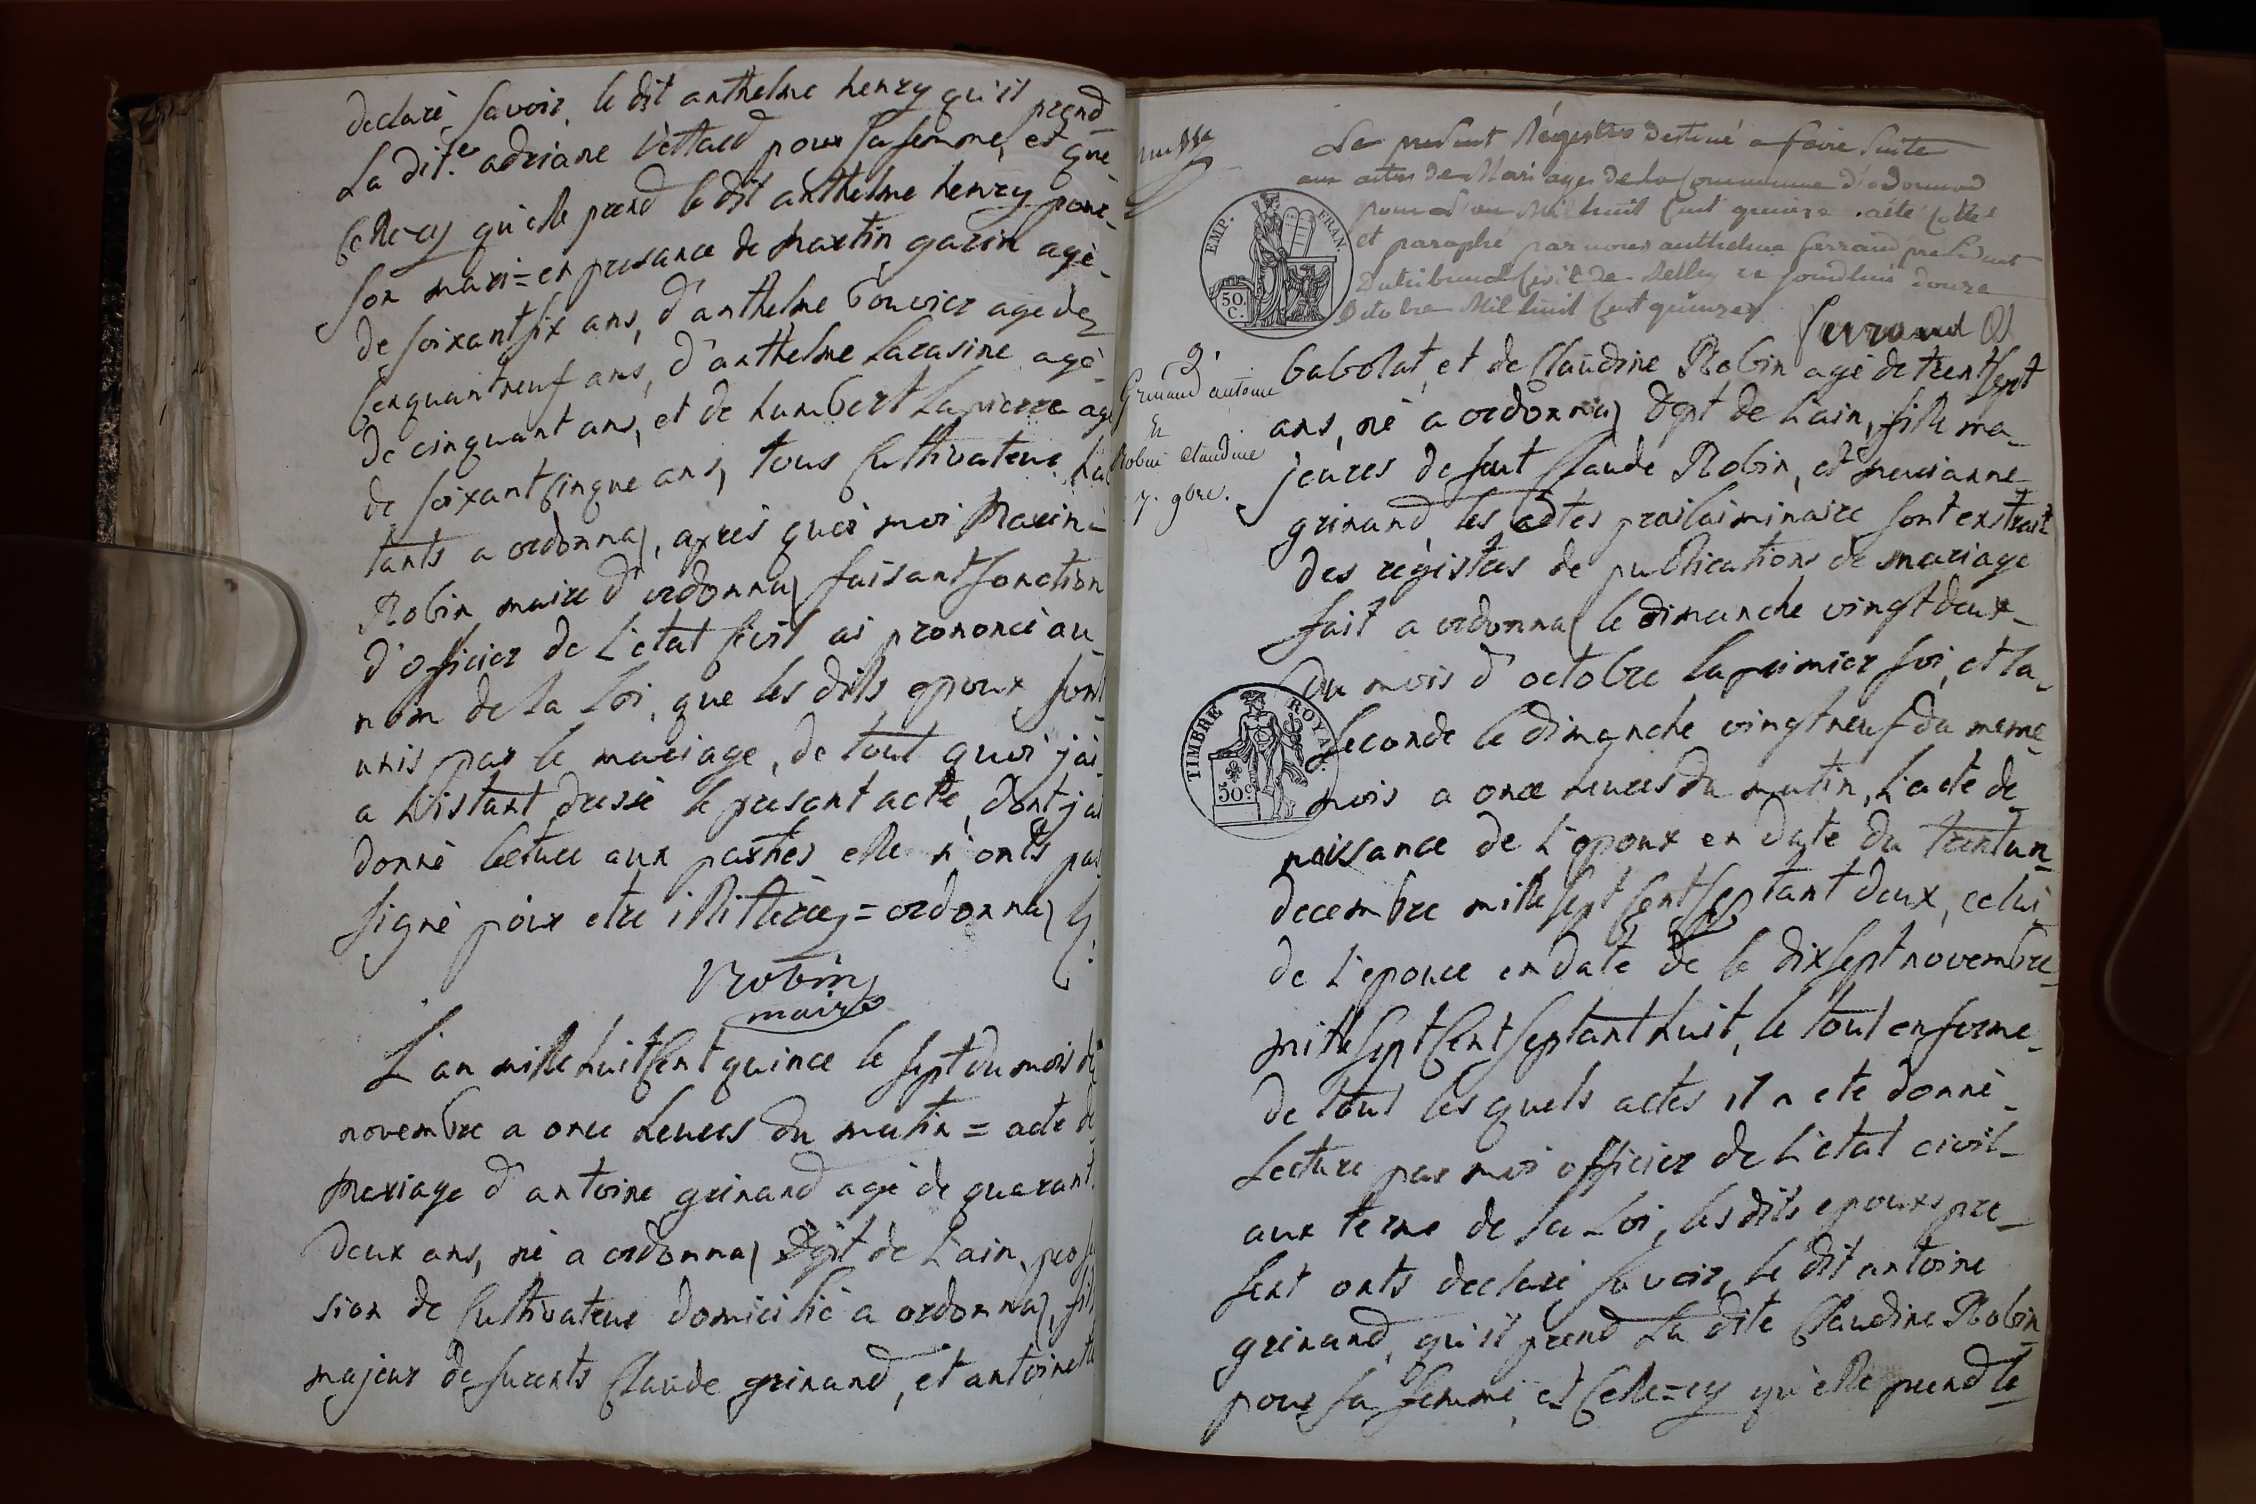 declaré, savoir, le dit anthelme henry qu'il prend
La dit.e adriane Vettard pour sa femme, et que
Celle-cy qu'elle prend le dit anthelme henry pour
son mari = en presance de Martin garin agé
de soixant six ans, d'anthelme bouvier agé de
cenquantneuf ans, d'anthelme Lacasine agé
de cinquant ans, et de humbert Lapierre agé
de soixant cinque ans, tous Cultivateur, ha
tants a ordonnaz, après quoi moi
Robin, maire d'ordonnaz faisant fonction
d'officier de L'etat Civil ai prononcé au
nom de la Loi, que les dits epoux, sont
unis par le mariage, de tout quoi j'ai
a L'istant dressé le presant acte, dont j'ai
donné lecture aux parties elle n'onts pas
signé pour etre illitterez = ordonnaz
Robin
maire
L'an mille huit Cent quince le sept du mois de
novembre a once heures du matin = acte de
Mariage d'antoine grinand agé de quarant
deux ans, né a ordonnaz Dept de L'ain, profe
sion de Cultivateur domicilié a ordonnaz, fils
majeur de furents Claude grinand, et antoinette
Le present Régistre destiné a faire suite
aux actes de Mariages de la Commune d'ordonnaz
pour L'an Mil huit Cent quinze a été Cotté
et paraphé par nous anthelme Serrand president
du tribunal Civil de Belley ce jourdhui douze
Octobre Mil huit Cent quinze
Serrand
EMP. FRAN.
50.
C.
9.
Grinand antoine
et
Robin Claudine
7. 9bre.
babolat, et de Claudine Robin agé de trent sept
ans, né a ordonnaz Dept de L'ain, fille ma-
jeures de feut Claude Robin, et meurianne
grinand, les actes prailaiminaire sont extrait
des régistres de publications de mariage
fait a ordonnaz le dimanche vingt deux
du mois d'octobre la primier foi, et la
seconde le dimanche vingt neuf du meme
mois a once heures du matin, L'acte de
naissance de L'epoux en date du trentun
decembre mille sept Cent septant deux, celui
de L'epouce en date de le dix sept novembre
mille sept Cent septant huit, le tout en forme
de tous les quels actes il a ete donné
Lecture par moi officier de L'etat civil
aux terme de la Loi, les dits epouxs pre-
sent onts declaré, savoir, le dit antoine
grinand, qu'il prend La dite Claudine Robin
pour sa femme, et Celle=cy qu'elle prend le
TIMBRE ROYAL
50c